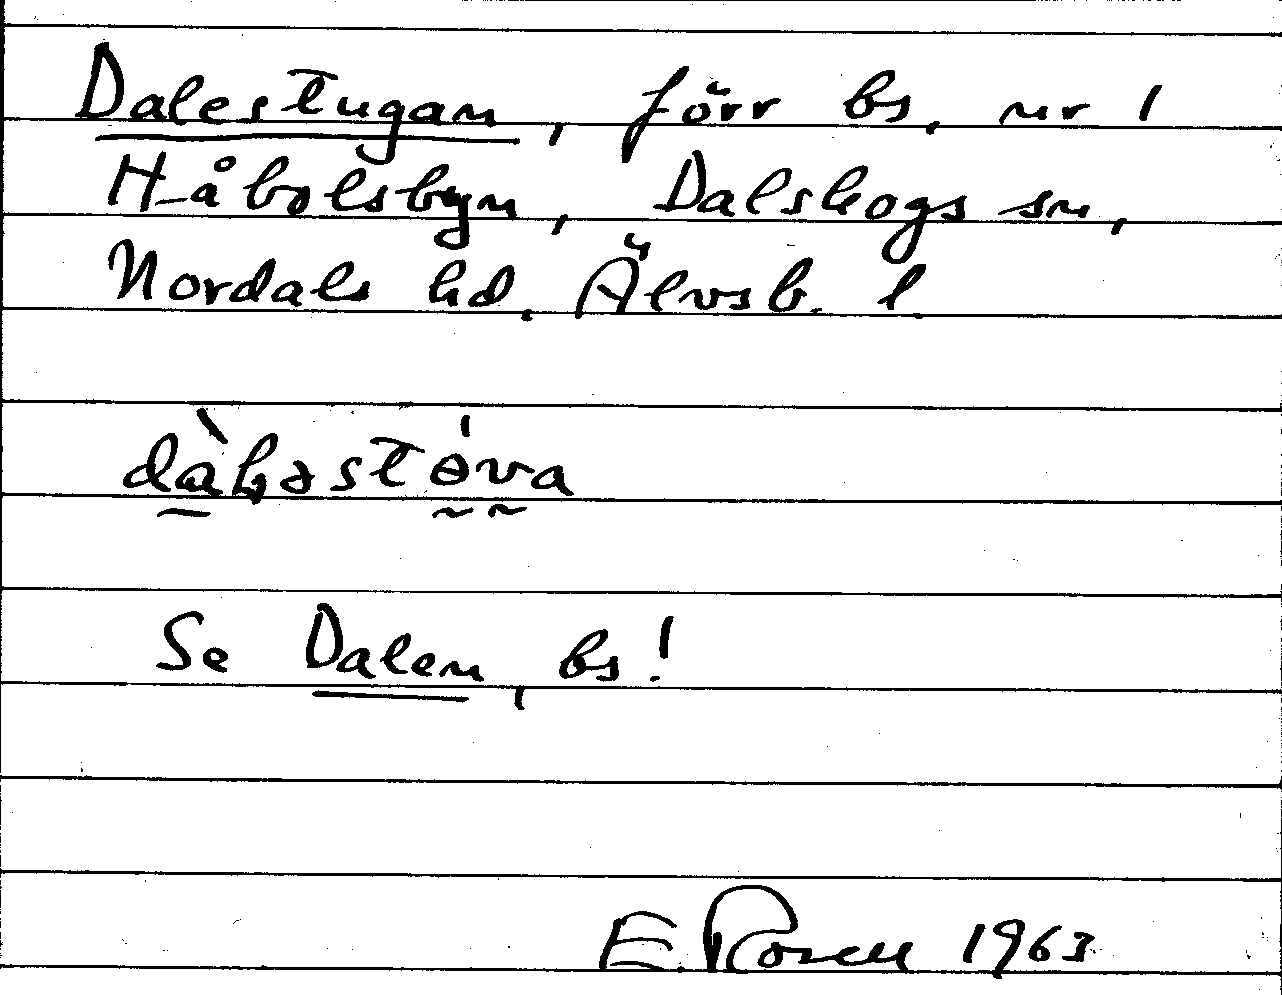 Dalestugan, förr bs. nr 1
Håbolsbyn, Dalskogs sn,
Nordals hd. Älvsb. l.
dàḷəstɵ́va
Se Dalen, bs!
E. Rosell 1963